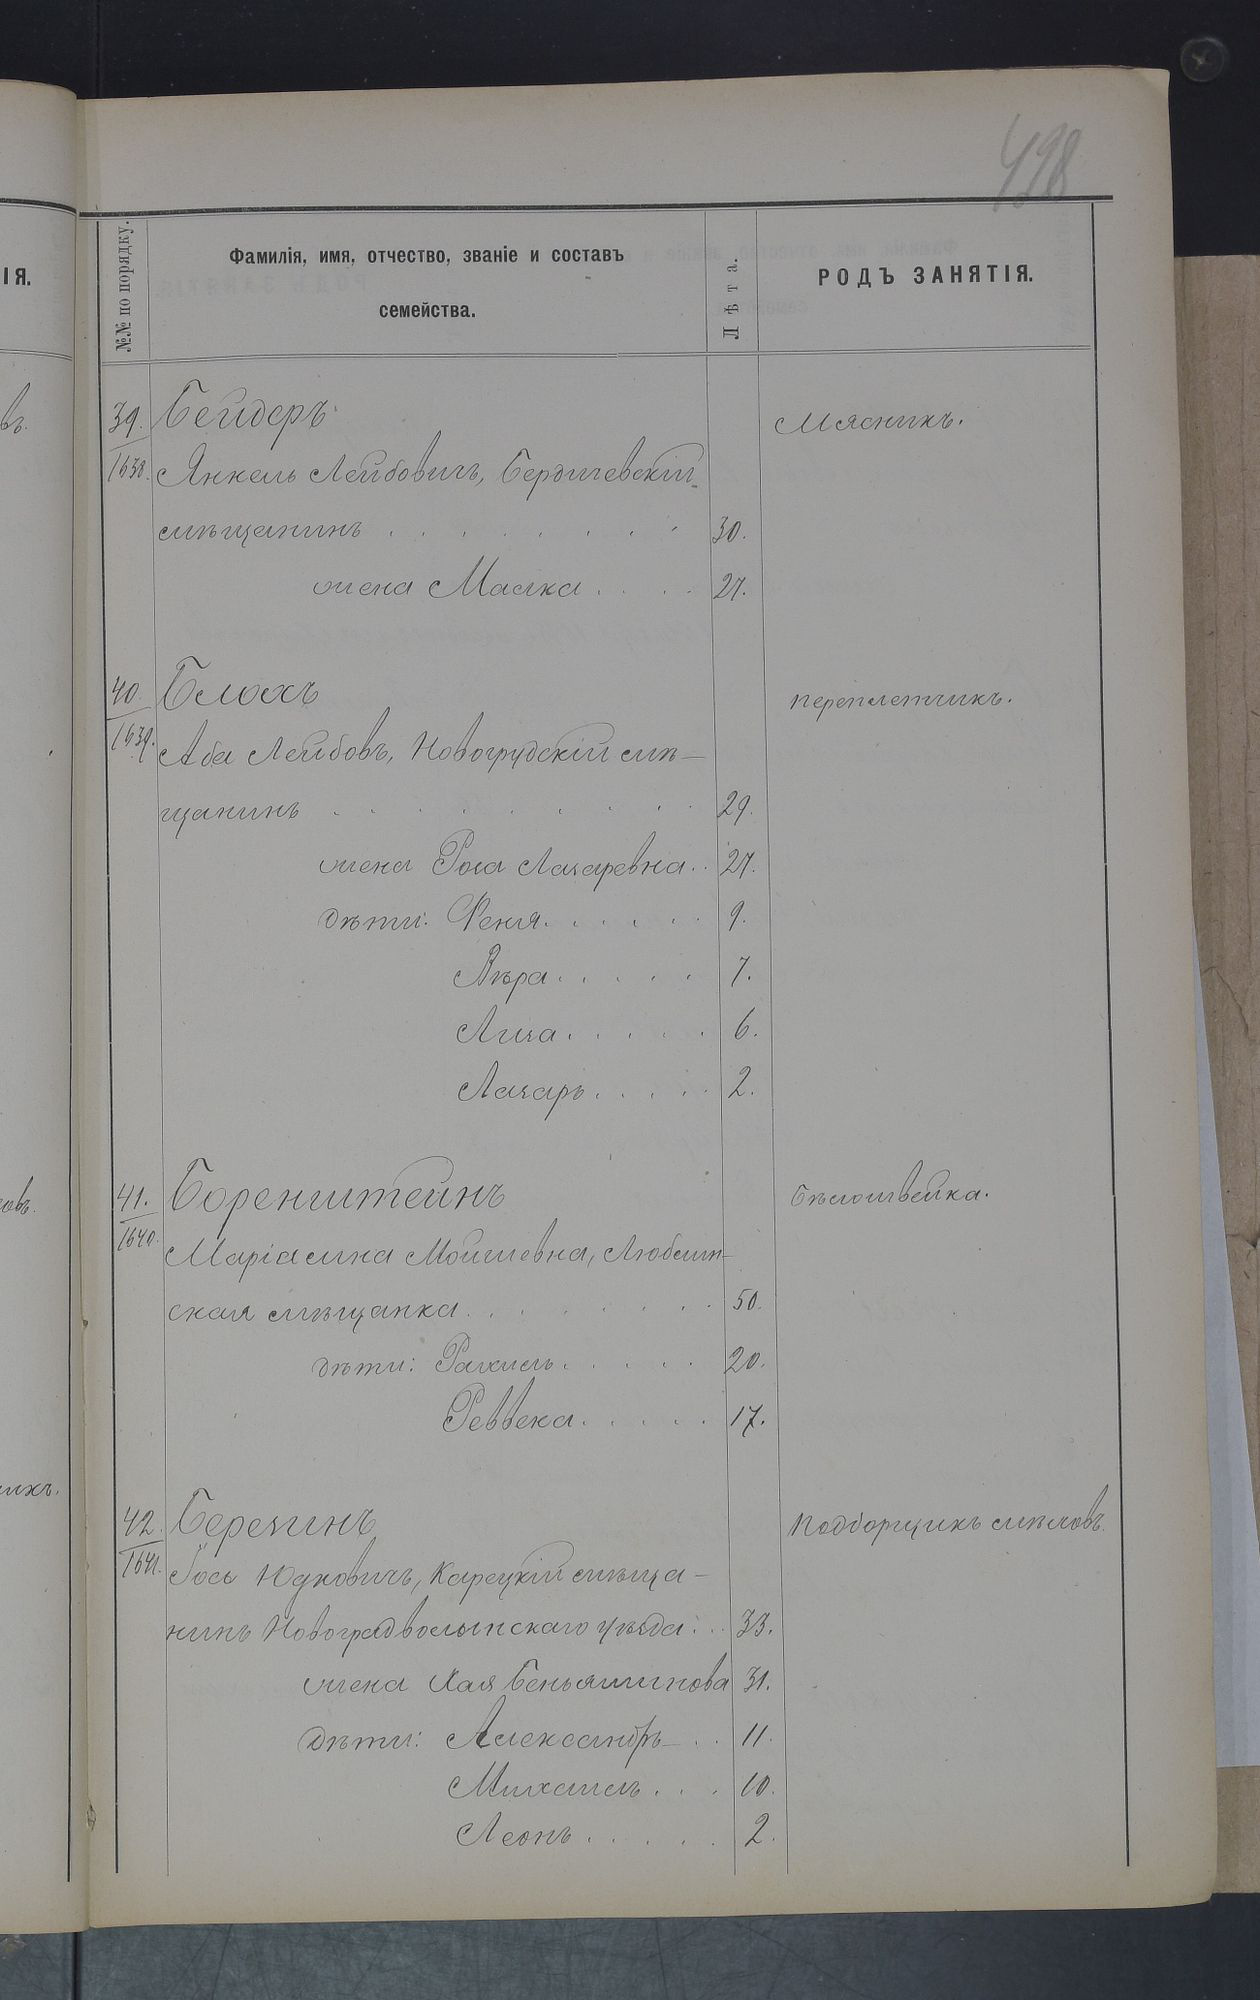 498
№№ по порядку.
Фамилія, имя, отчество, званіе и составъ
семейства.
Лѣта.
РОДЪ ЗАНЯТІЯ.
ІЯ.
39. Бейдеръ Мясникъ.
1638. Янкель Лейбовичъ, Бердичевскій
мѣщанинъ . . . . . . . 30.
жена Малка . . . . 27.
40. Блохъ переплетчикъ.
1639. Аба Лейбовъ, Новогрудскій мѣ-
щанинъ . . . . . . . 29.
жена Роза Лазаревна . . 27.
дѣти: Феня . . . . . . 9.
Вѣра . . . . . 7.
Лиза . . . . . 6.
Лазарь . . . . . 2.
41. Боренштейнъ бѣлошвейка.
1640. Маріасина Мойшевна, Люблин-
ская мѣщанка . . . . . . . . 50.
дѣти: Рахиль . . . . . 20.
Реввека . . . . . 17.
42. Березинъ Подборщикъ мѣховъ.
1641. Іось Юдковичъ, Карецкій мѣща-
нинъ Новоградволынскаго уѣзда . . . 33.
жена Хая Беньяминова 31.
дѣти: Александръ . . 11.
Михаилъ . . . 10.
Леонъ . . . . . 2.